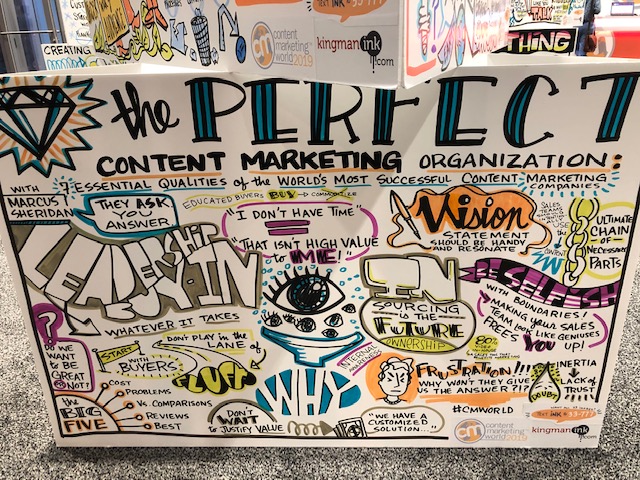 CREATING
content
marketing
world2019
kingmanink
.com
THING
the PERFECT
CONTENT MARKETING ORGANIZATION:
WITH
MARCUS
SHERIDAN
7 ESSENTIAL QUALITIES of the WORLD'S MOST SUCCESSFUL CONTENT MARKETING
COMPANIES
THEY ASK
YOU
ANSWER
EDUCATED BUYERS BUY → COMMODITIZE
LEADERSHIP
BUY-IN
WHATEVER IT TAKES
"I DON'T HAVE TIME"
=
"THAT ISN'T HIGH VALUE
to ME!"
Vision
STATEMENT
SHOULD BE HANDY
AND RESONATE
SALES
TEAMS
USE
the
CONTENT
ULTIMATE
CHAIN
OF
NECESSARY
PARTS
IN
SOURCING
is the
FUTURE
OWNERSHIP
BE SELFISH
WITH BOUNDARIES!
MAKING your SALES
TEAM LOOK LIKE GENIUSES
FREES
YOU UP!
80%
?
DO WE
WANT to
BE
GREAT
OR NOT?
START
WITH
BUYERS
DON'T PLAY in the
LANE OF
FLUFF
INTERNAL
WHY
FRUSTRATION!!!
WHY WON'T THEY GIVE
US THE ANSWER?!?!
INERTIA
↓
LACK of
TRUST
DOUBT
the
BIG
FIVE
COST
PROBLEMS
VS. COMPARISONS
REVIEWS
BEST
DON'T
WAIT
to JUSTIFY VALUE
"WE HAVE A
CUSTOMIZED
SOLUTION..."
#CMWORLD
TEXT INK to 33-777
content
marketing
world2019
kingmanink
.com